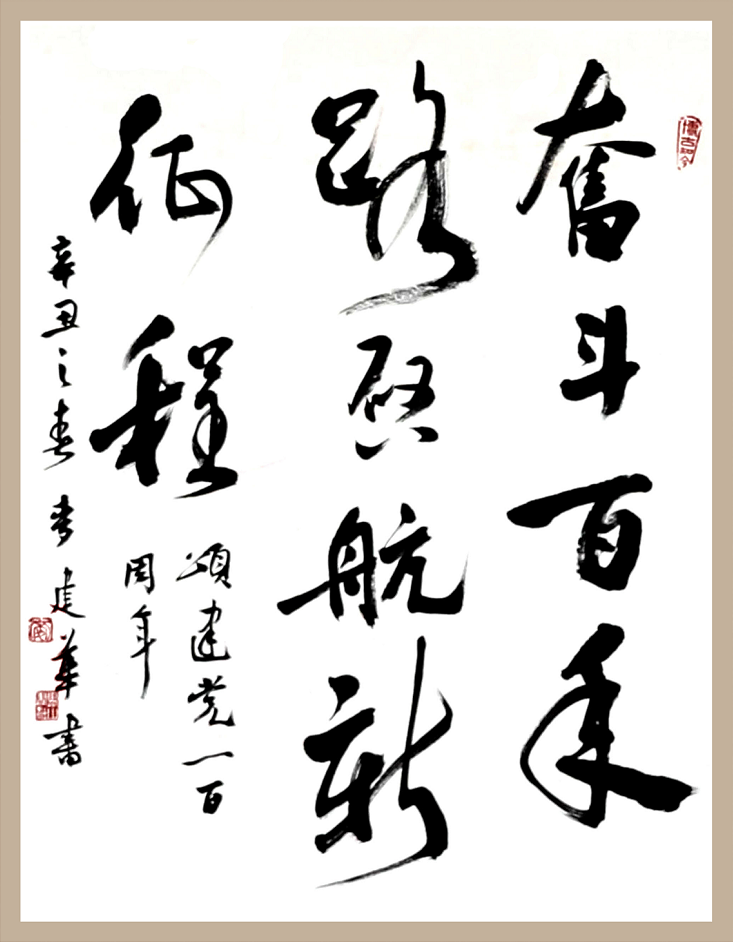 奮斗百年
路啟航新
征程
頌建党一百
周年
辛丑之春李建華書
博古知今